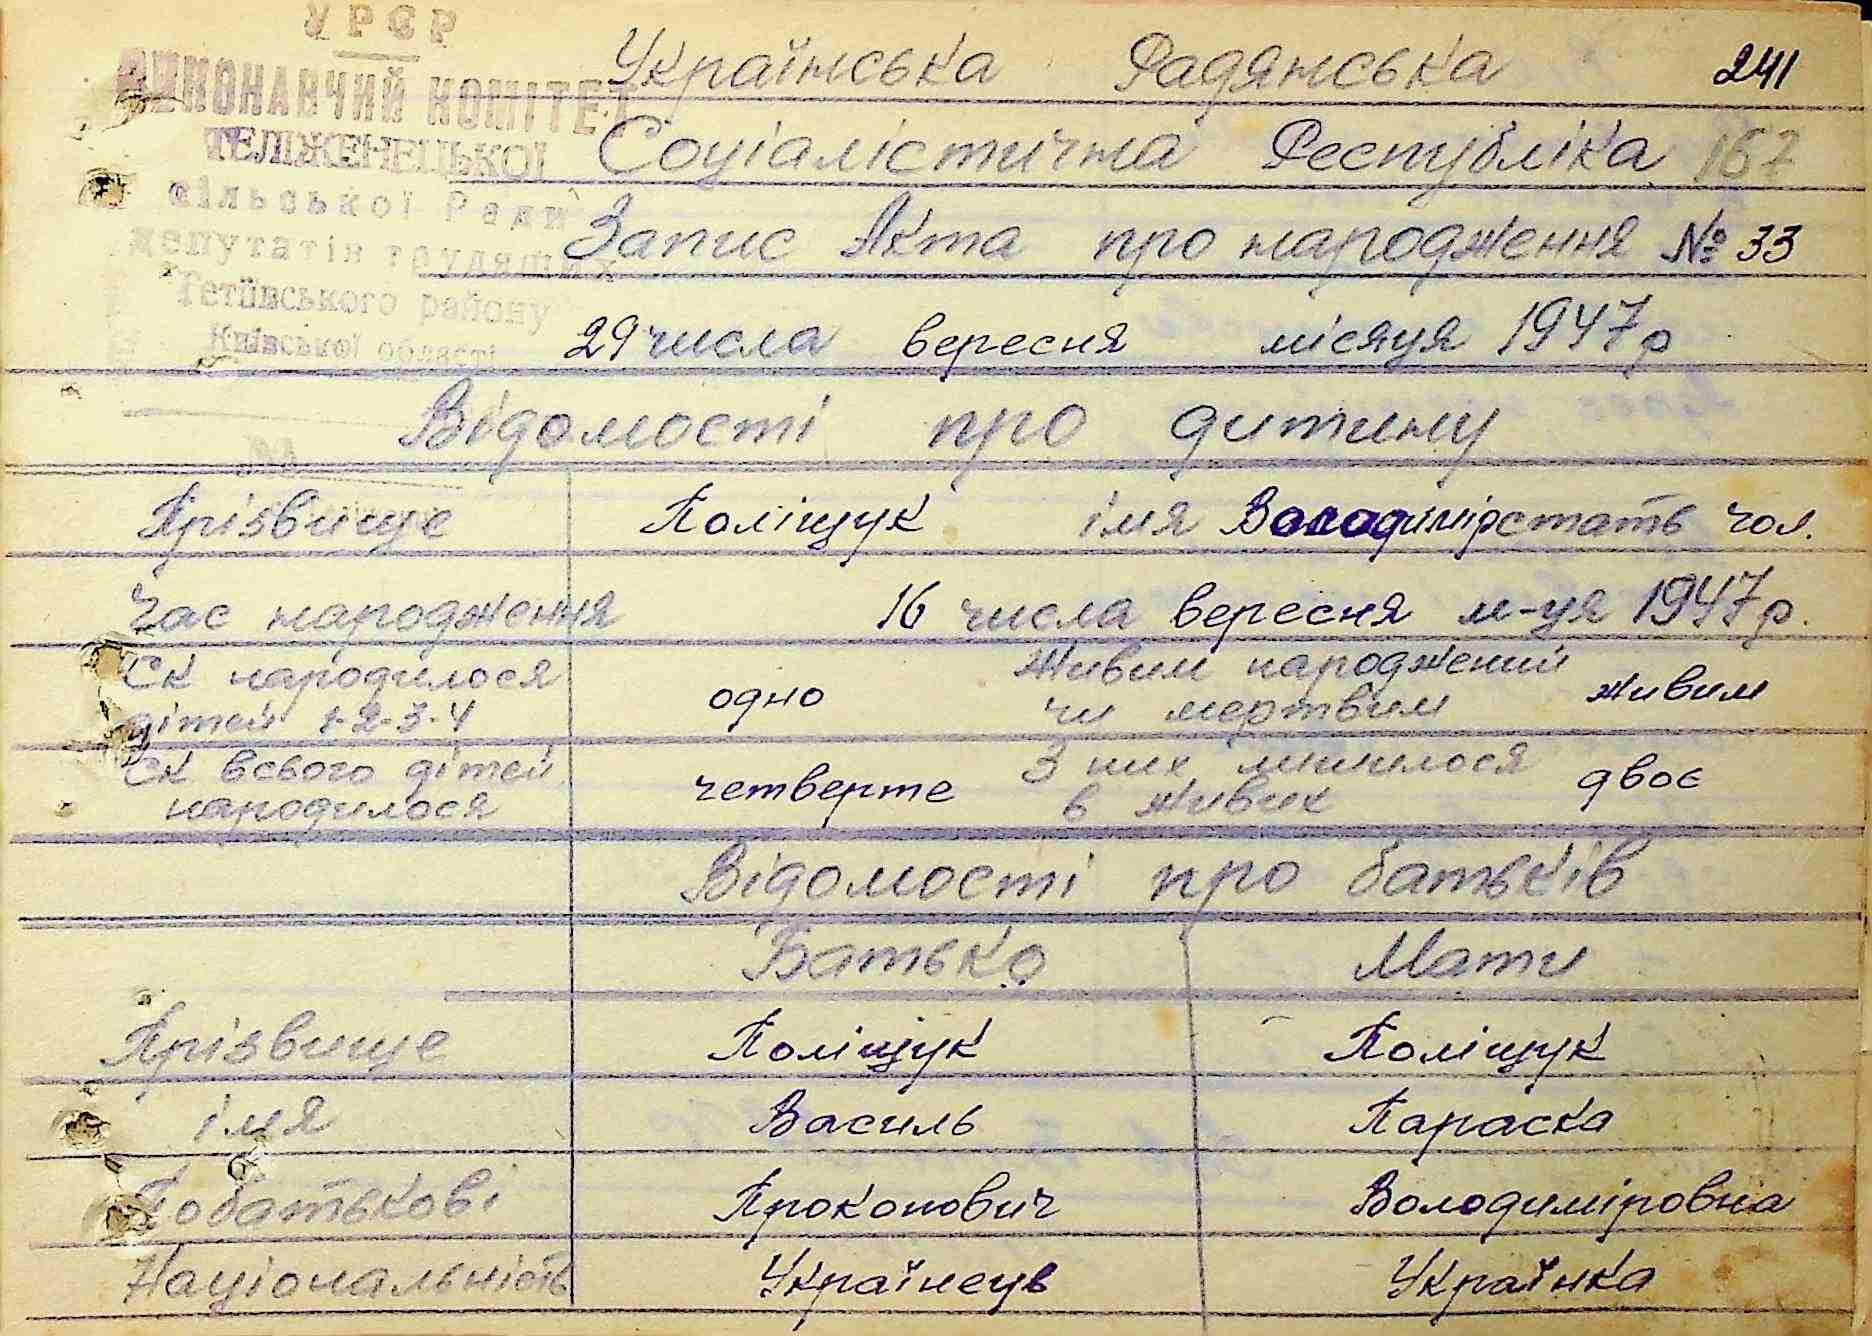 УРСР
ВИКОНАВЧИЙ КОМІТЕТ
ТЕЛІЖЕНЕЦЬКОЇ
сільської Ради
депутатів трудящих
Тетіївського району
Київської області
№
Українська Радянська 241
Соціалістична Республіка 167
Запис Акта про народження № 33
29 числа вересня місяця 1947 р
Відомості про дитину
Прізвище Поліщук імя Володимір стать чол.
Час народження 16 числа вересня м-ця 1947 р.
Ск народилося дітей 1-2-3-4 одно Живим народжений чи мертвим живим
Ск всього дітей народилося четверте З них лишилося в живих двоє
Відомості про батьків
Батько Мати
Прізвище Поліщук Поліщук
імя Василь Параска
Побатькові Прокопович Володиміровна
Національність Українець Українка